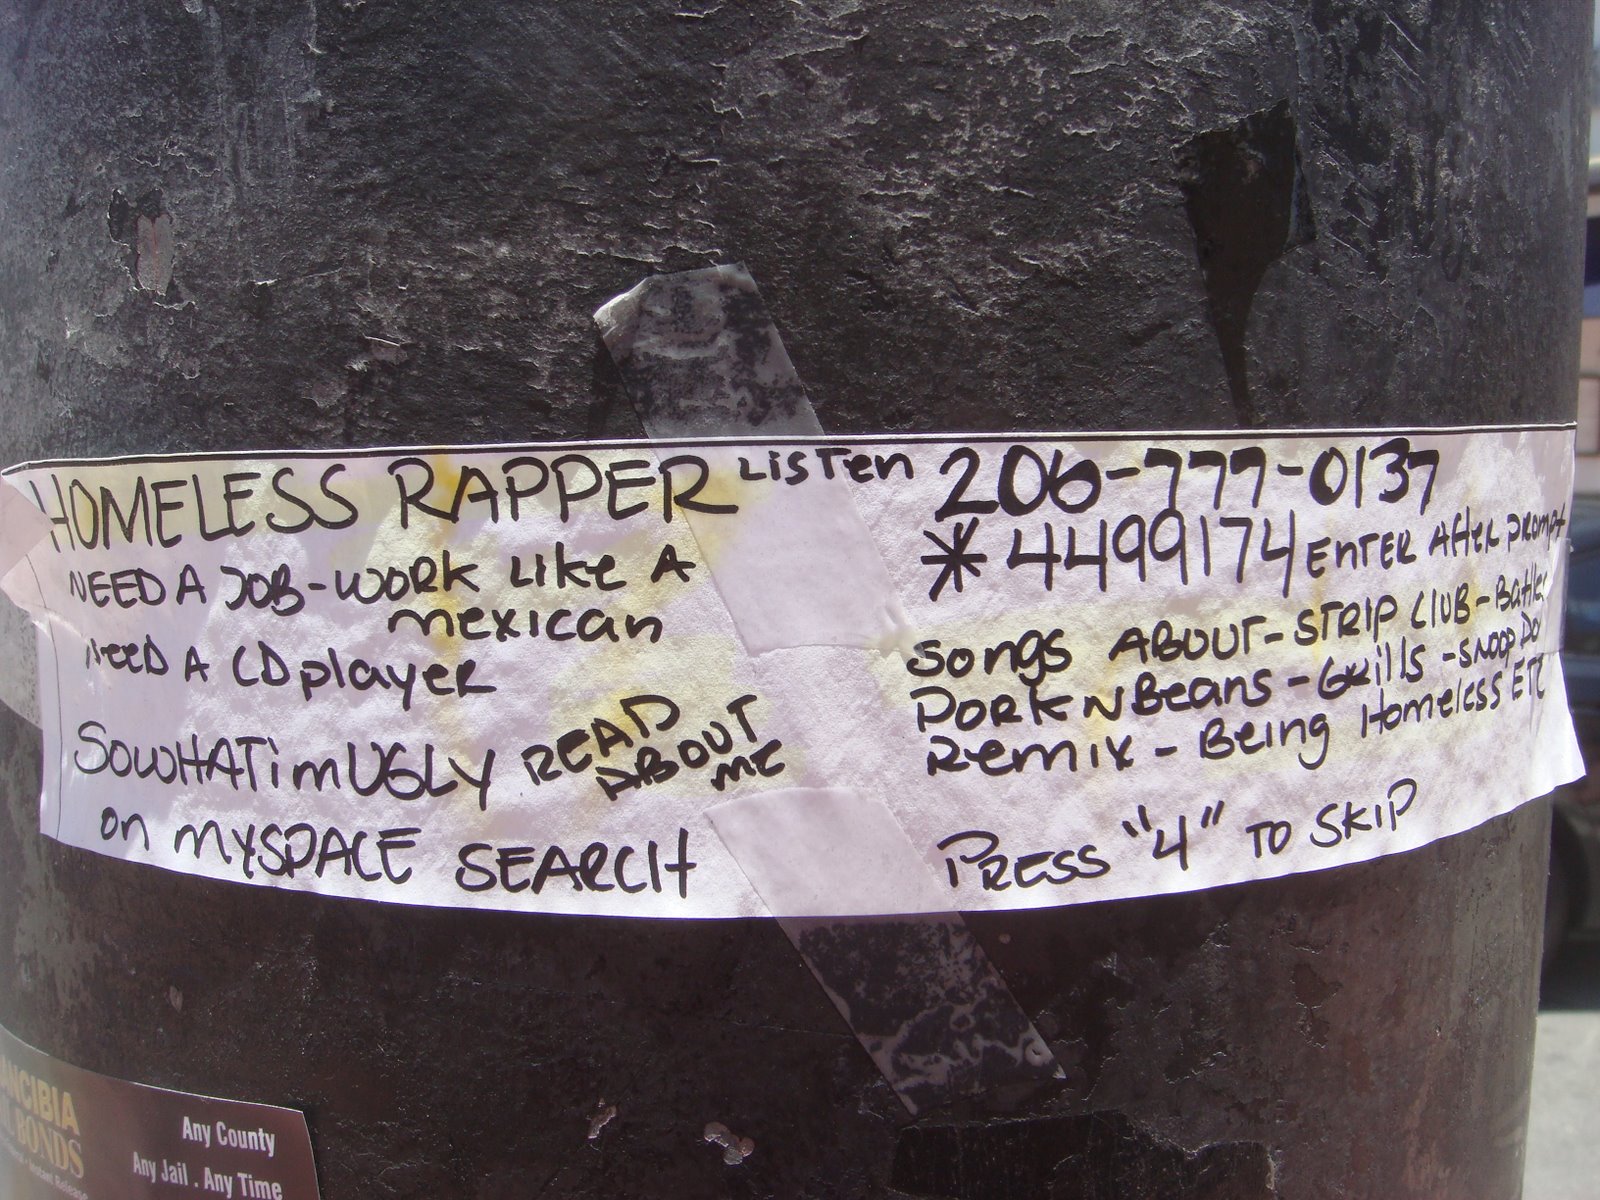 HOMELESS RAPPER Listen 206-777-0137
NEED A JOB-WORK Like A
mexican
NEED A CD player
SoWHATimUGLY READ
ABOUT
ME
on MYSPACE SEARCH
* 4499174 ENTER After prompt
Songs ABOUT-STRIP CLUB-Battles
PORK N Beans-Grills-SNOOP DO
Remix-Being Homeless ETC
PRESS "4" TO SKIP
ANCIBIA
BONDS
Any County
Any Jail . Any Time